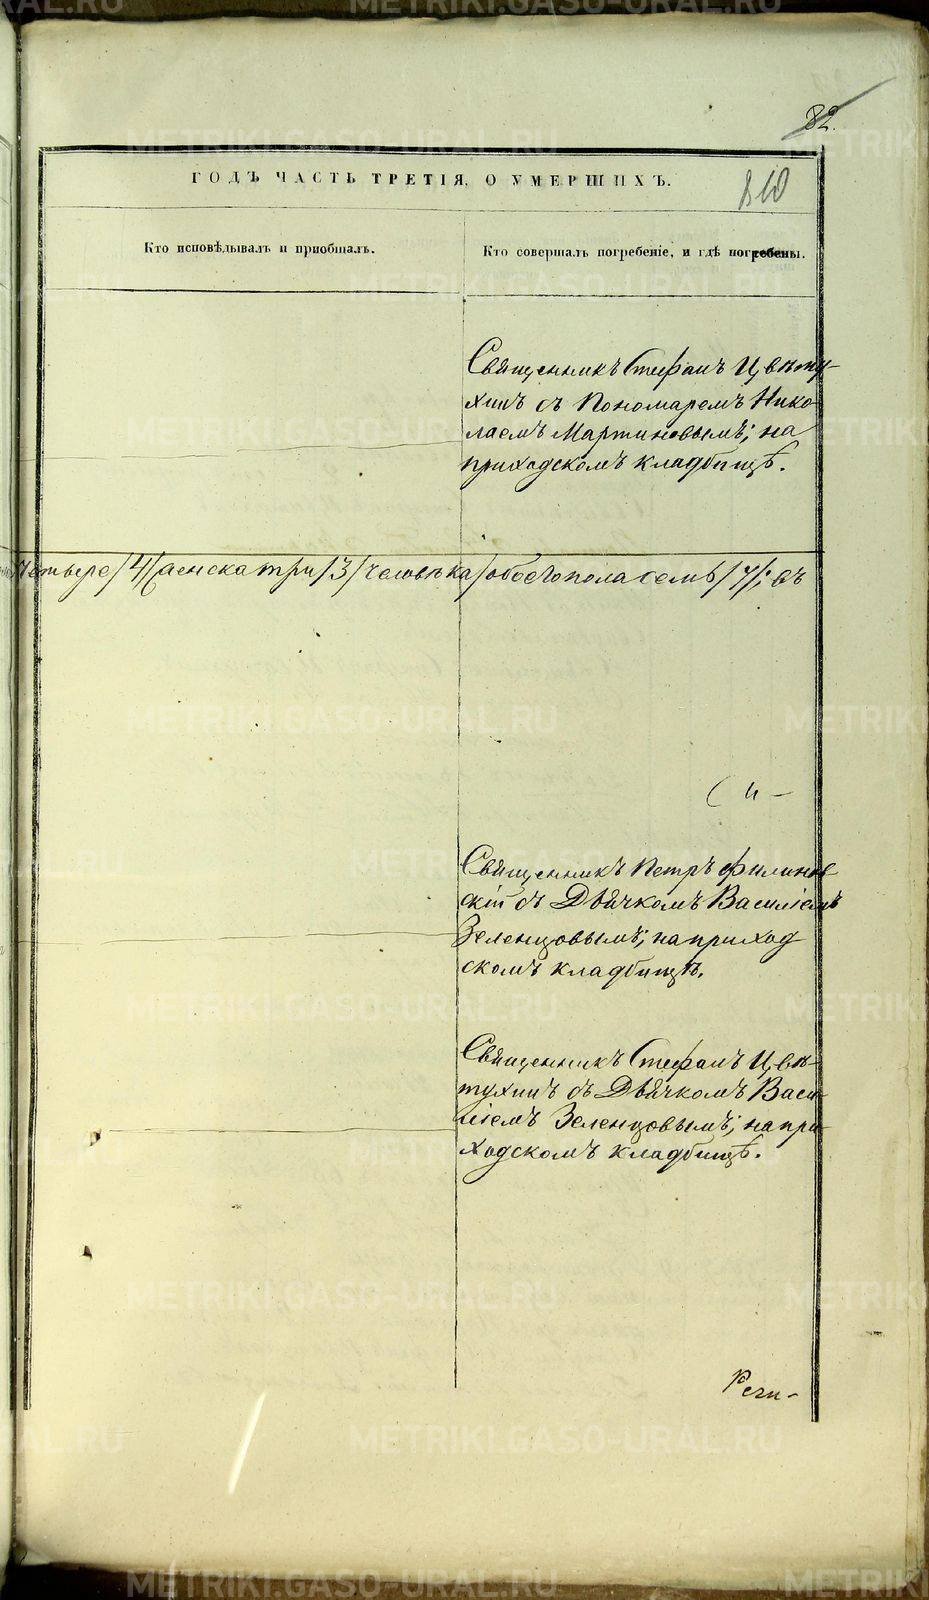 82.
ГОДЪ ЧАСТЬ ТРЕТІЯ, О УМЕРШИХЪ.
Кто исповѣдывалъ и пріобщалъ.
Кто совершалъ погребеніе, и гдѣ погребены.
Священникъ Стефанъ Цвѣту-
хинъ съ Пономаремъ Нико-
лаемъ Мартиновымъ; на
приходскомъ кладбищѣ.
четыре /4/ женска три /3/ человѣка / обоего пола семь /7/; въ
Священникъ Петръ Филинов
скій съ Дьячкомъ Василіемъ
Зеленцовымъ; на приход
скомъ кладбищѣ.
Священникъ Стефанъ Цвѣ-
тухинъ съ Дьячкомъ Васи-
ліемъ Зеленцовымъ; на при-
ходскомъ кладбищѣ.
METRIKI.GASO-URAL.RU